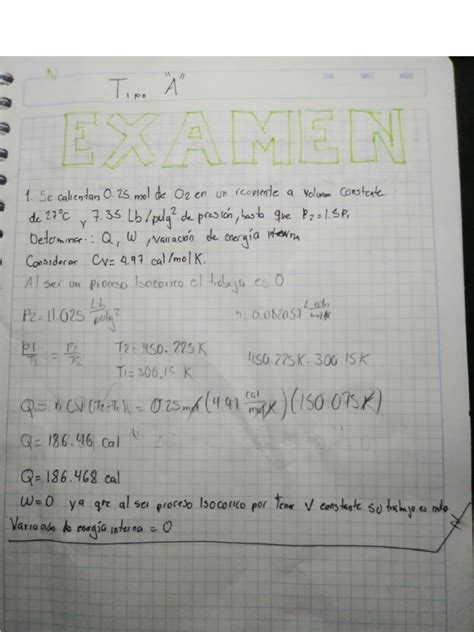 N
DIA MES AÑO
Tipo "A"
EXAMEN
1. Se calientan 0.25 mol de O2 en un recipiente a volumen constante
de 27°C y 7.35 Lb/pulg² de presión, hasta que P2=1.5P1
Determinar: Q, W, variación de energía interna
Considerar CV= 4.97 cal/mol K.
Al ser un proceso Isocorico el trabajo es 0
P2= 11.025 Lb/pulg²
P1/T1 = P2/T2 T2= 450.225 K 450.225K - 300.15K
T1= 300.15 K
Q= n CV (T2-T1) = 0.25 mol (4.97 cal/mol K) (150.075 K)
Q= 186.46 cal
Q= 186.468 cal
W=0 ya que al ser proceso Isocorico por tener V constante su trabajo es nulo
Variación de energía interna = 0